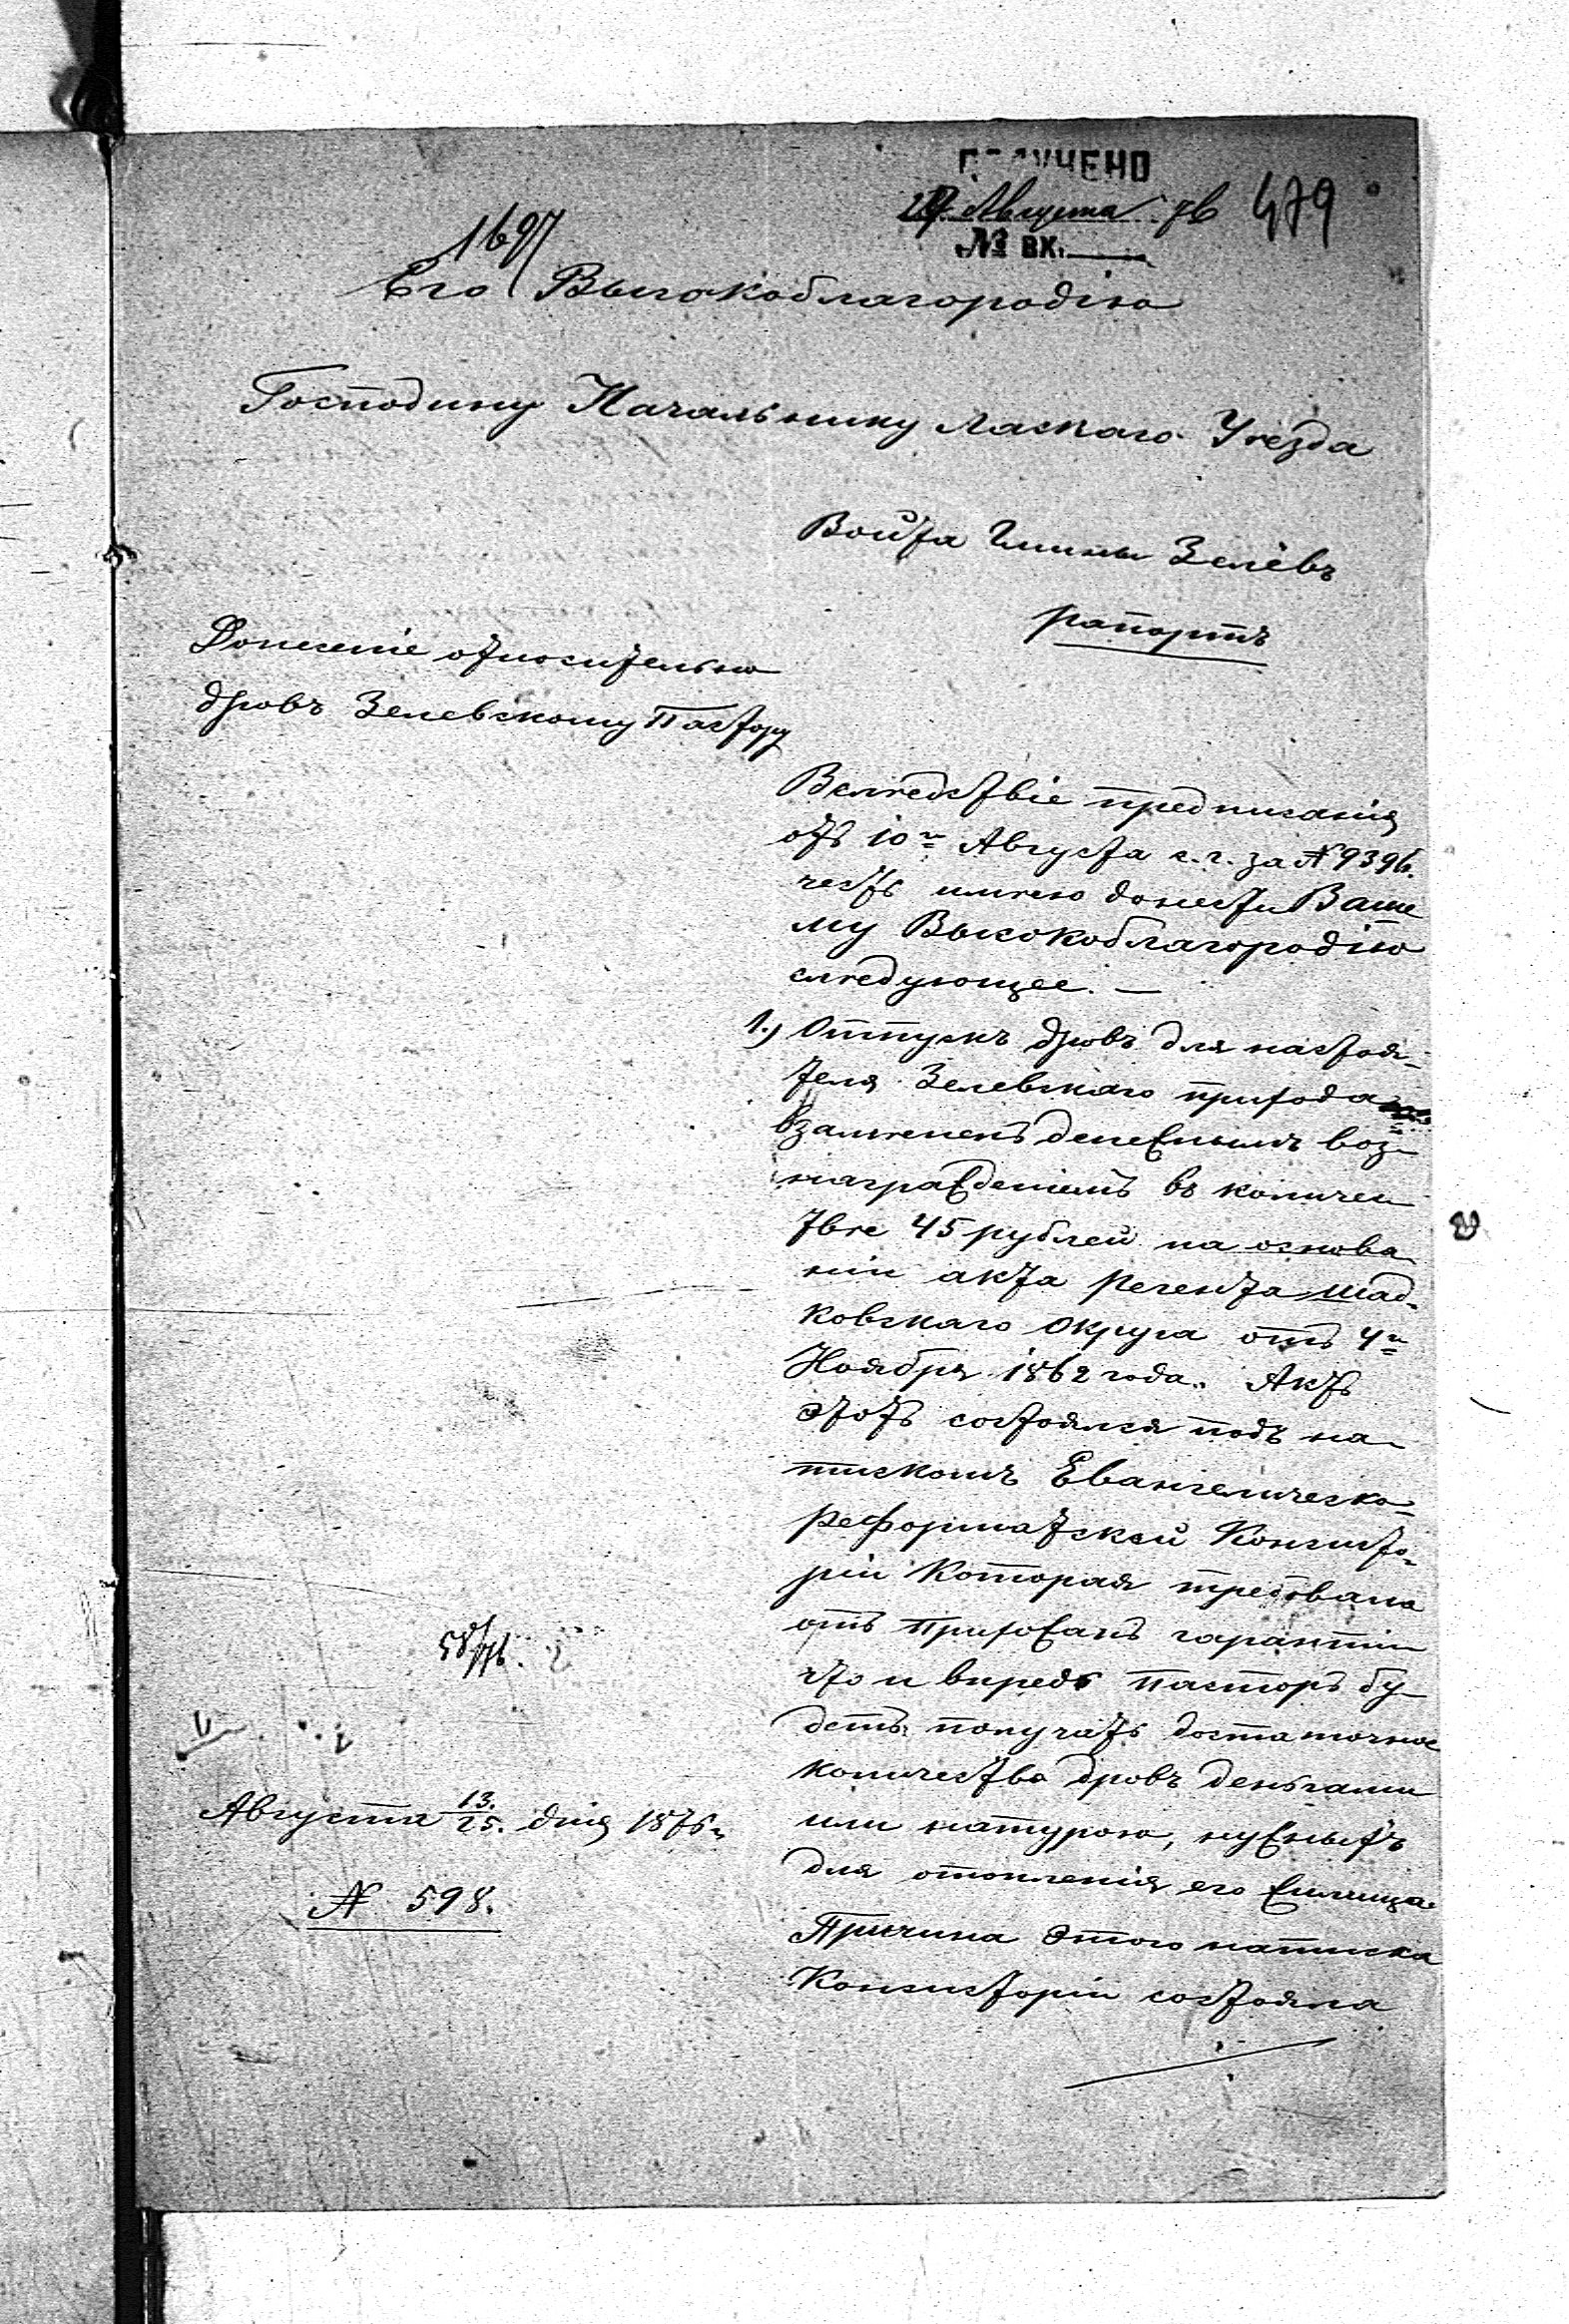 ПОЛУЧЕНО
Августа 76
479
№ ВХ.
1697
Его Высокоблагородію
Господину Начальнику Ласкаго Уѣзда
Войта Гмины Зелёвъ
рапортъ
Донесеніе относительно
дровъ Зелевскому Пастору
Вслѣдствіе предписанія
отъ 10го Августа с.г. за № 9396.
честь имѣю донести Ваше
му Высокоблагородію
слѣдующее. —
1.) Отпускъ дровъ для настоя-
теля Зелевскаго прихода
взамѣненъ денежнымъ воз-
награжденіемъ въ количес
твѣ 45 рублей на основа
ніи акта Регента Шад-
ковскаго Округа отъ 4го
Ноября 1862 года. Актъ
этотъ состоялся подъ на-
тискомъ Евангелическо-
реформатской Консисто-
ріи Которая требовала
отъ прихожанъ гарантіи
что и впредь пасторъ бу-
детъ получать достаточное
количество дровъ деньгами
или натурою, нужныхъ
для отопленія его жилища
Причина этого натиска
Консисторіи состояла
58/76.
Августа 13./25. дня 1876 г.
№ 598.